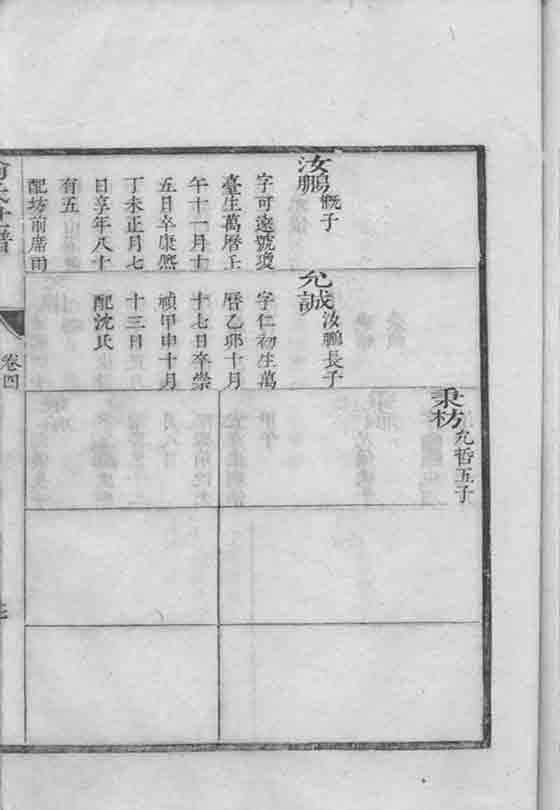 秉枋 允哲五子
汝鵬 慨子
字可遠號瓊
臺生萬曆壬
午十一月十
五日卒康熙
丁未正月七
日享年八十
有五
配坊前席雨
允誠 汝鵬長子
字仁初生萬
曆乙卯十月
十七日卒崇
禎甲申十月
十三日
配沈氏
卷四